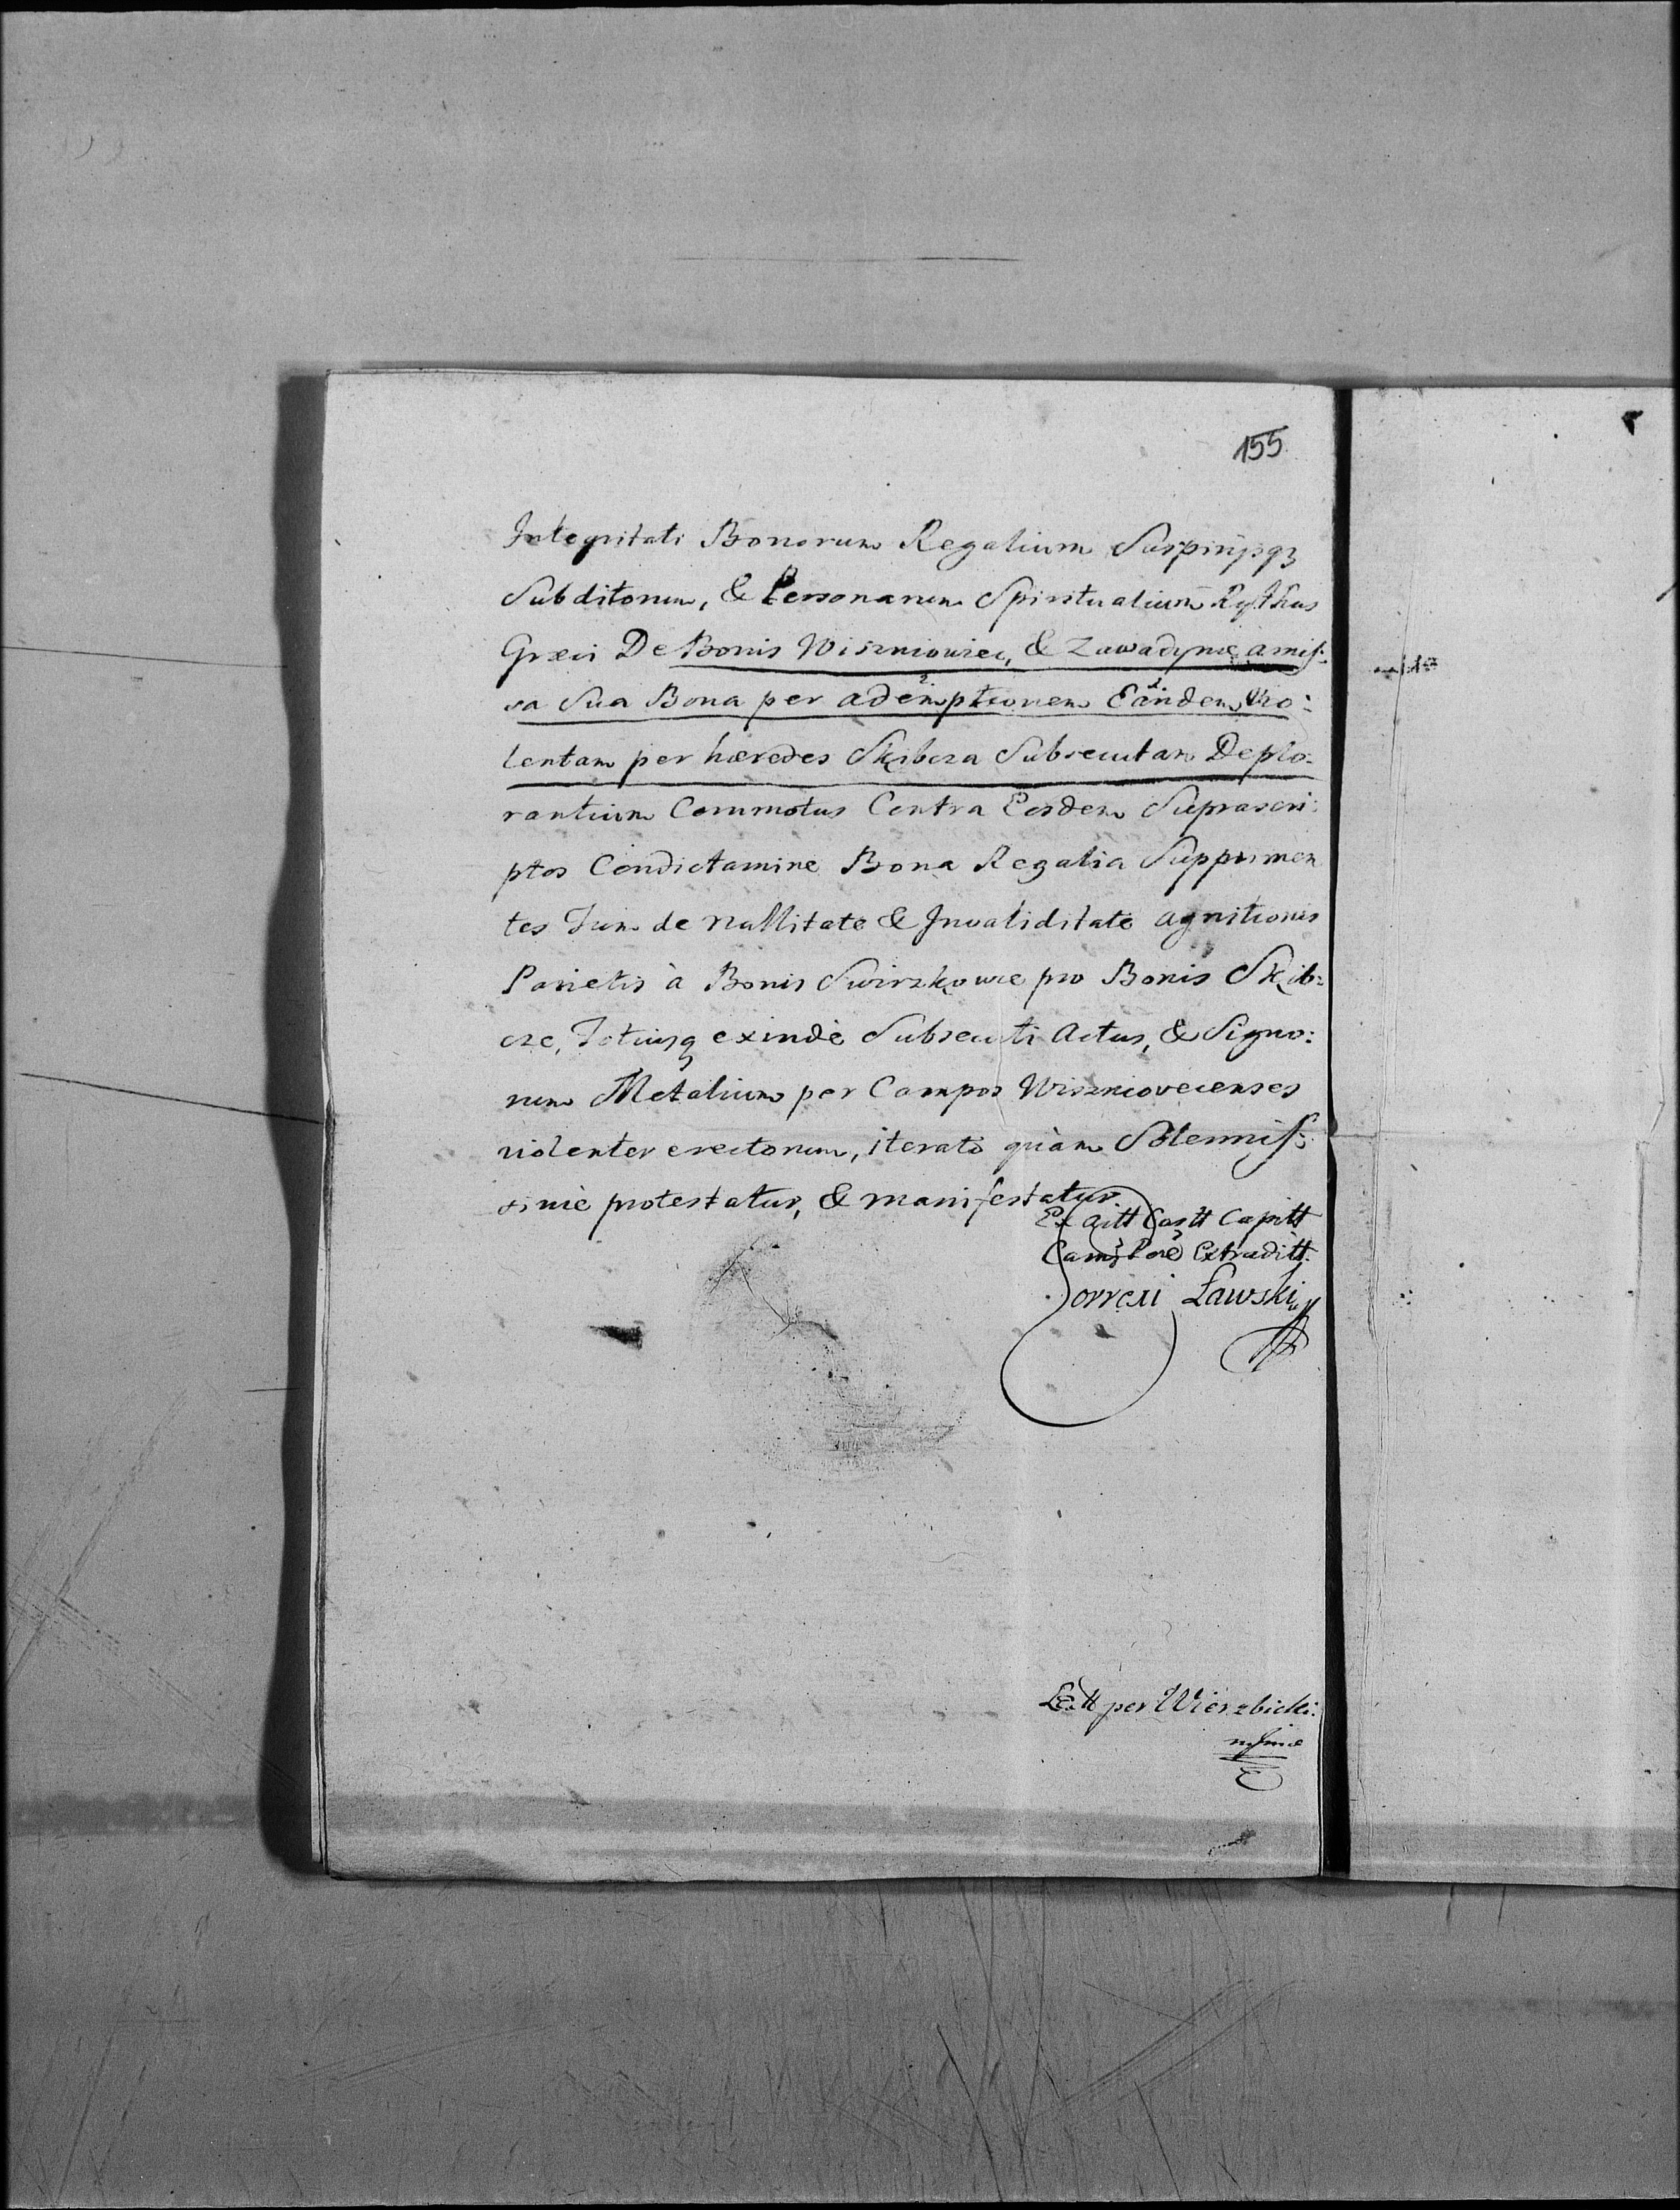 155
Integritati Bonorum Regalium Suspirijsqз
Subditorum, & Personarum Spiritualium Rythus
Græci De Bonis Wiszniowiec, & Zawadynie amis:
sa Sua Bona per ademptionem Eandem Vio:
lentam per hæredes Skibcza Subsecutam Deplo:
rantium Commotus Contra Eosdem Suprascri:
ptos Condictamine Bona Regalia Supprimen
tes Tum de Nullitate & Invaliditate agnitionis
Parietis à Bonis Swirzkowce pro Bonis Skib:
cze, Totiusq exindè Subsecuti Actus, & Signo:
rum Metalium per Campos Wiszniovecenses
violenter erectorum, iterato quàm Solennis:
simè protestatur, & manifestatur
Ex Actt Castt Capitt
Camz Extraditt.
Correxi Ławski
Lectt per Wierzbicki: